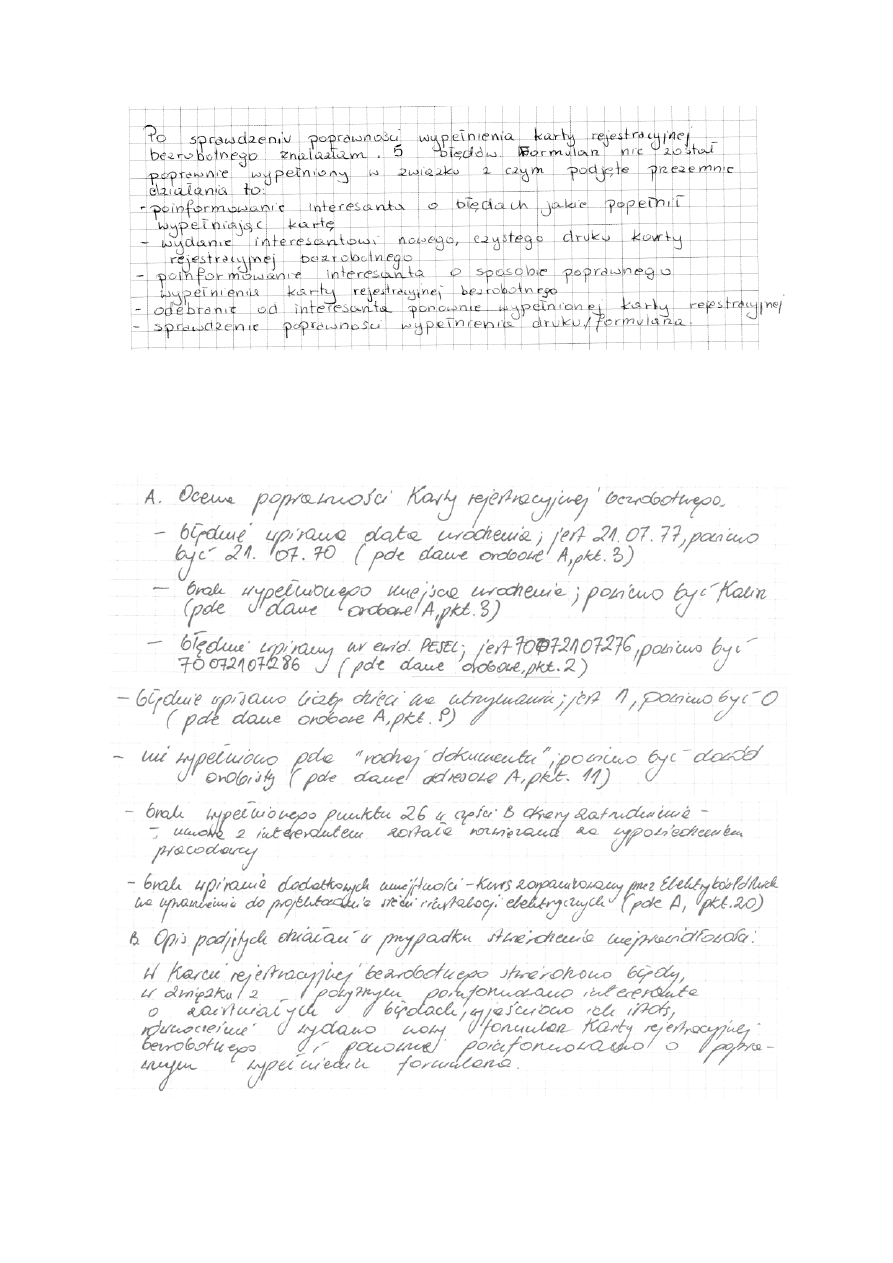 Po sprawdzeniu poprawności wypełnienia karty rejestracyjnej
bezrobotnego znalazłam 5 błędów. Formularz nie został
poprawnie wypełniony w związku z czym podjęte przezemnie
działania to:
- poinformowanie interesanta o błędach jakie popełnił
wypełniając kartę
- wydanie interesantowi nowego, czystego druku karty
rejestracyjnej bezrobotnego
- poinformowanie interesanta o sposobie poprawnego
wypełnienia karty rejestracyjnej bezrobotnego
- odebranie od interesanta ponownie wypełnionej karty rejestracyjnej
- sprawdzenie poprawności wypełnienia druku/formularza.
A. Ocena poprawności Karty rejestracyjnej bezrobotnego.
- błędnie wpisana data urodzenia; jest 21.07.77, powinno
być 21.07.70 (pole dane osobowe A, pkt.3)
- brak wypełnionego miejsca urodzenia; powinno być Kalin
(pole dane osobowe A, pkt.3)
- błędnie wpisany nr ewid. PESEL; jest 70072107276, powinno być
70072107286 (pole dane osobowe, pkt.2)
- błędnie wpisano liczbę dzieci na utrzymaniu; jest 1, powinno być 0
(pole dane osobowe A, pkt. 9)
- nie wypełniono pola "rodzaj dokumentu"; powinno być dowód
osobisty (pole dane adresowe A, pkt. 11)
- brak wypełnionego punktu 26 w części B okresy zatrudnienia -
- umowa z interesantem została rozwiązana za wypowiedzeniem
pracodawcy
- brak wpisania dodatkowych umiejętności - kurs zorganizowany przez
na uprawnienia do projektowania sieci i instalacji elektrycznych (pole A, pkt.20)
B. Opis podjętych działań w przypadku stwierdzenia nieprawidłowości:
W Karcie rejestracyjnej bezrobotnego stwierdzono błędy,
w związku z powyższym poinformowano interesanta
o zaistniałych błędach, wyjaśniono ich istotę,
równocześnie wydano nowy formularz Karty rejestracyjnej
bezrobotnego i ponownie poinformowano o popra-
wnym wypełnieniu formularza.